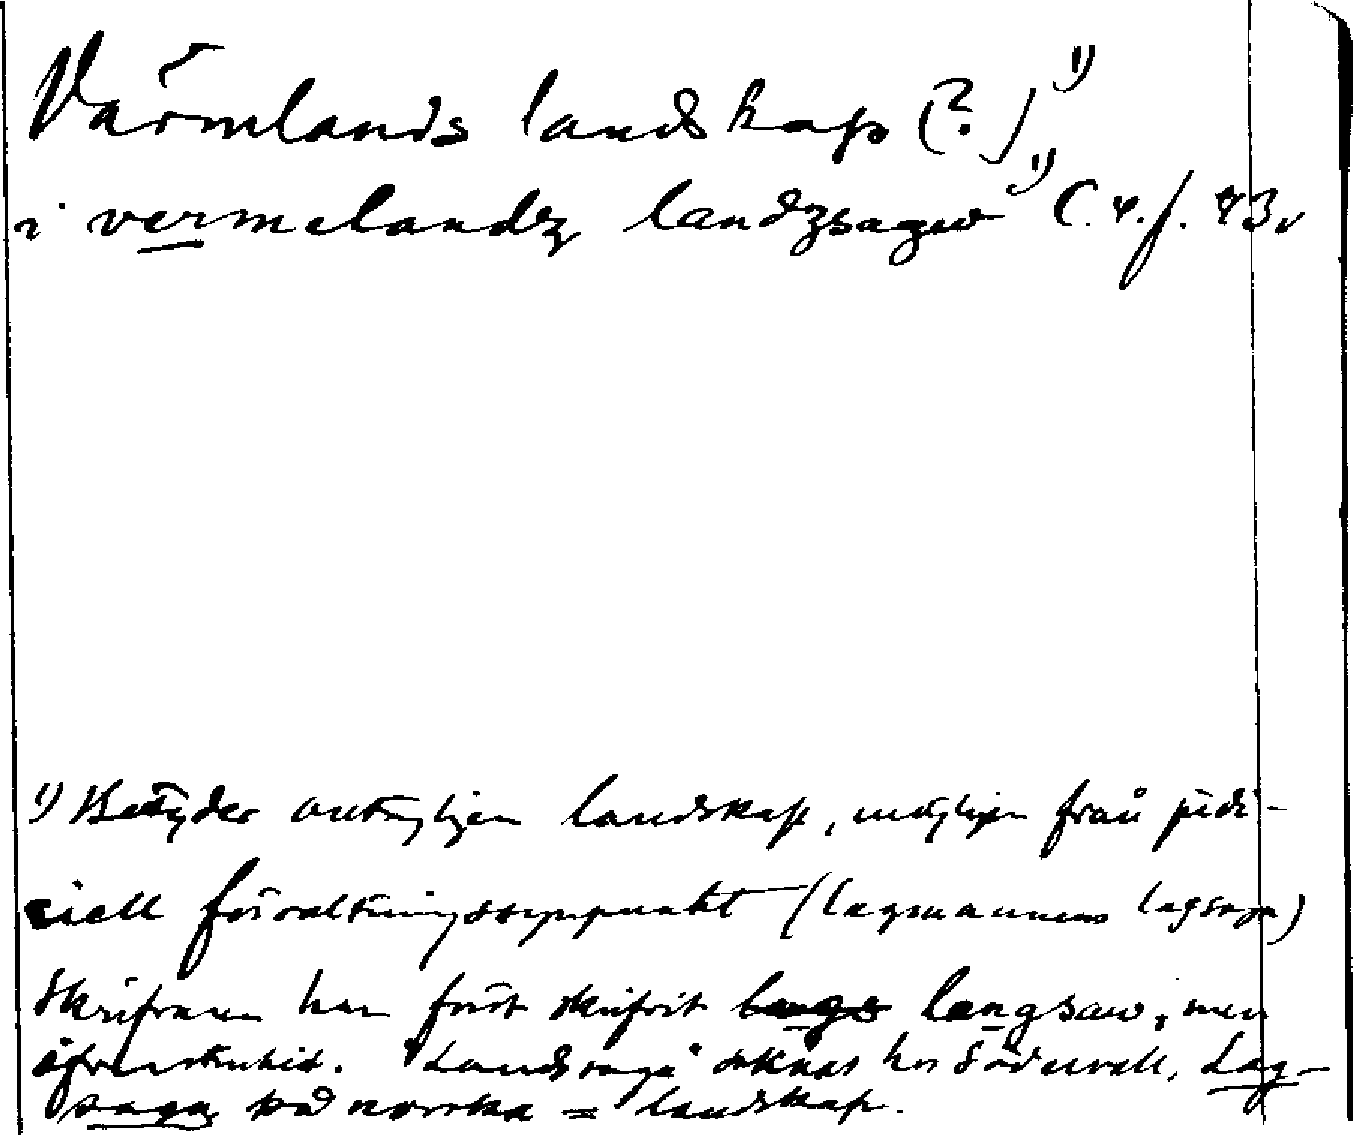 Värmlands landskap (?) 1)
i vermelandz landzsagw 1) C. 4. f. 43v
1) Betyder antagligen landskap, möjligen från judi-
ciell förvaltningssynpunkt (lagmannens lagsaga)
Skrifvaren har först skrifvit langsaw, men
öfverstrukit. "Landssaga" saknas hos Södervall. Lag-
saga på norska = landskap.